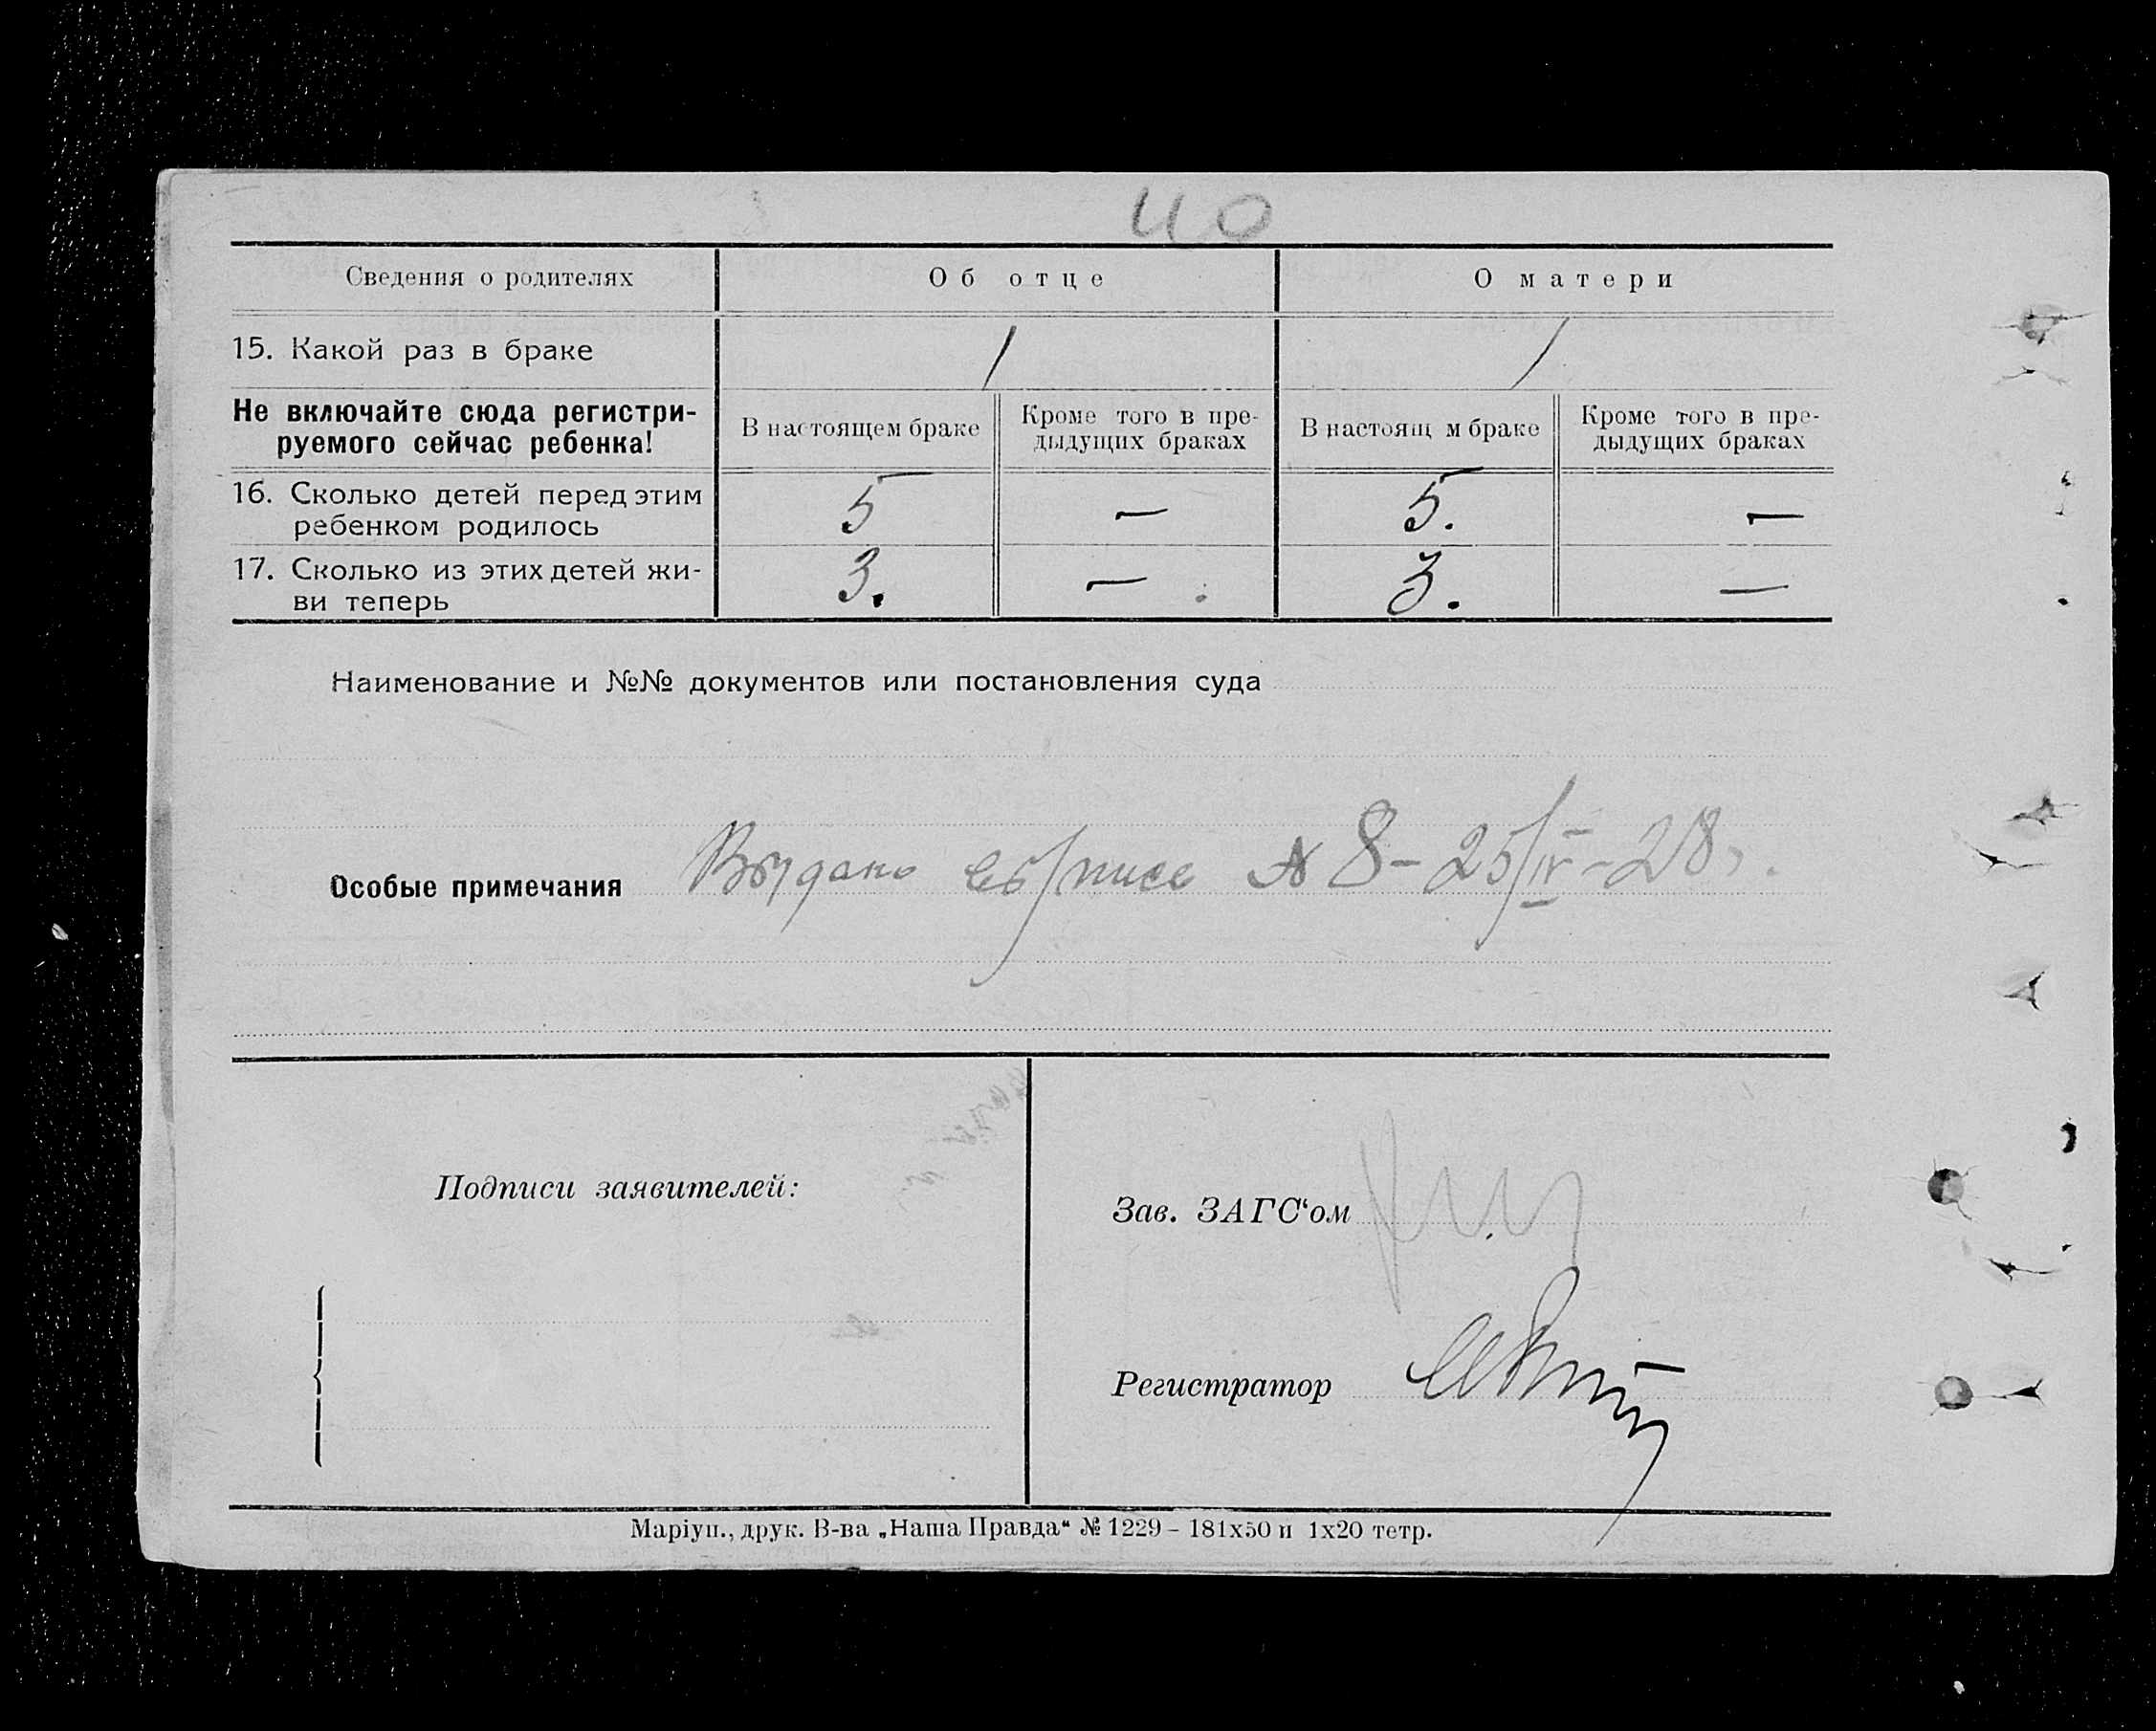 40
Сведения о родителях Об отце О матери
15. Какой раз в браке 1 1
Не включайте сюда регистри-
руемого сейчас ребенка!
В настоящем браке Кроме того в пре-
дыдущих браках В настоящ м браке Кроме того в пре-
дыдущих браках
16. Сколько детей перед этим
ребенком родилось 5 — 5. —
17. Сколько из этих детей жи-
ви теперь 3. — 3. —
Наименование и №№ документов или постановления суда
Особые примечания Выдано № 8 - 25/IV - 28 г.
Подписи заявителей:
Зав. ЗАГС‘ом
Регистратор
Маріуп., друк. В-ва „Наша Правда“ № 1229 – 181х50 и 1х20 тетр.